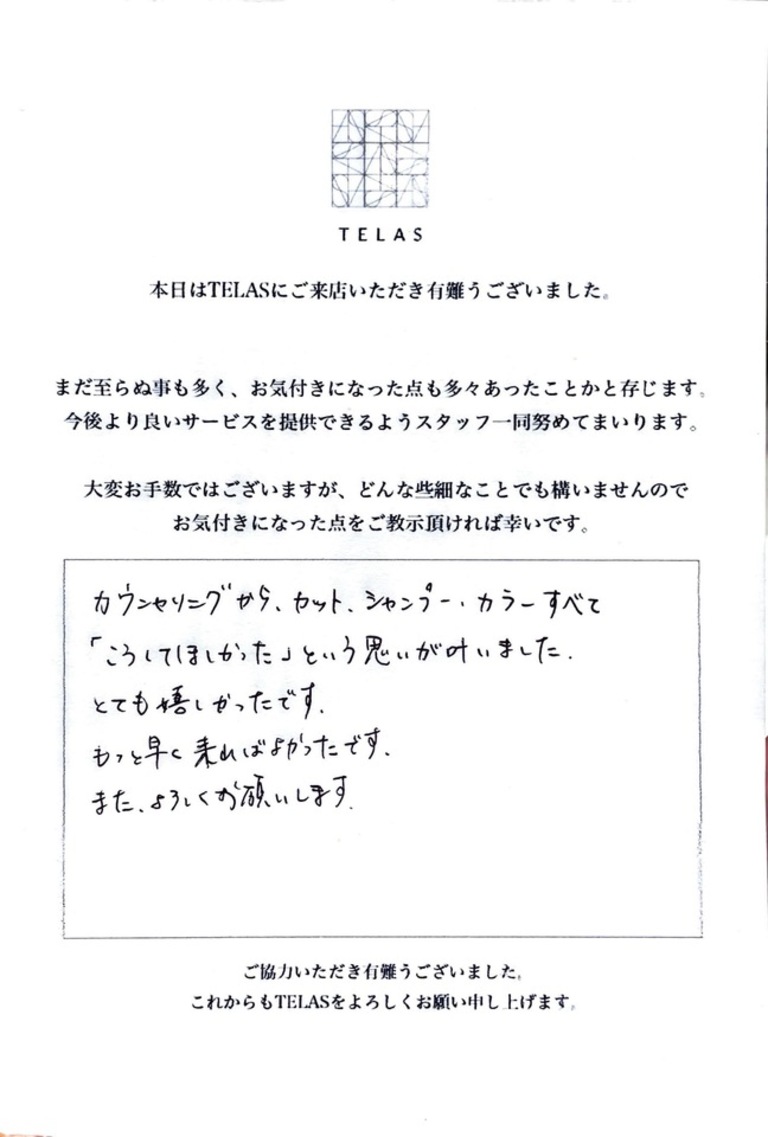 TELAS
本日はTELASにご来店いただき有難うございました。
まだ至らぬ事も多く、お気付きになった点も多々あったことかと存じます。
今後より良いサービスを提供できるようスタッフ一同努めてまいります。
大変お手数ではございますが、どんな些細なことでも構いませんので
お気付きになった点をご教示頂ければ幸いです。
カウンセリングから、カット、シャンプー・カラーすべて
「こうしてほしかった」という思いが叶いました.
とても嬉しかったです.
もっと早く来ればよかったです.
また、よろしくお願いします.
ご協力いただき有難うございました。
これからもTELASをよろしくお願い申し上げます。